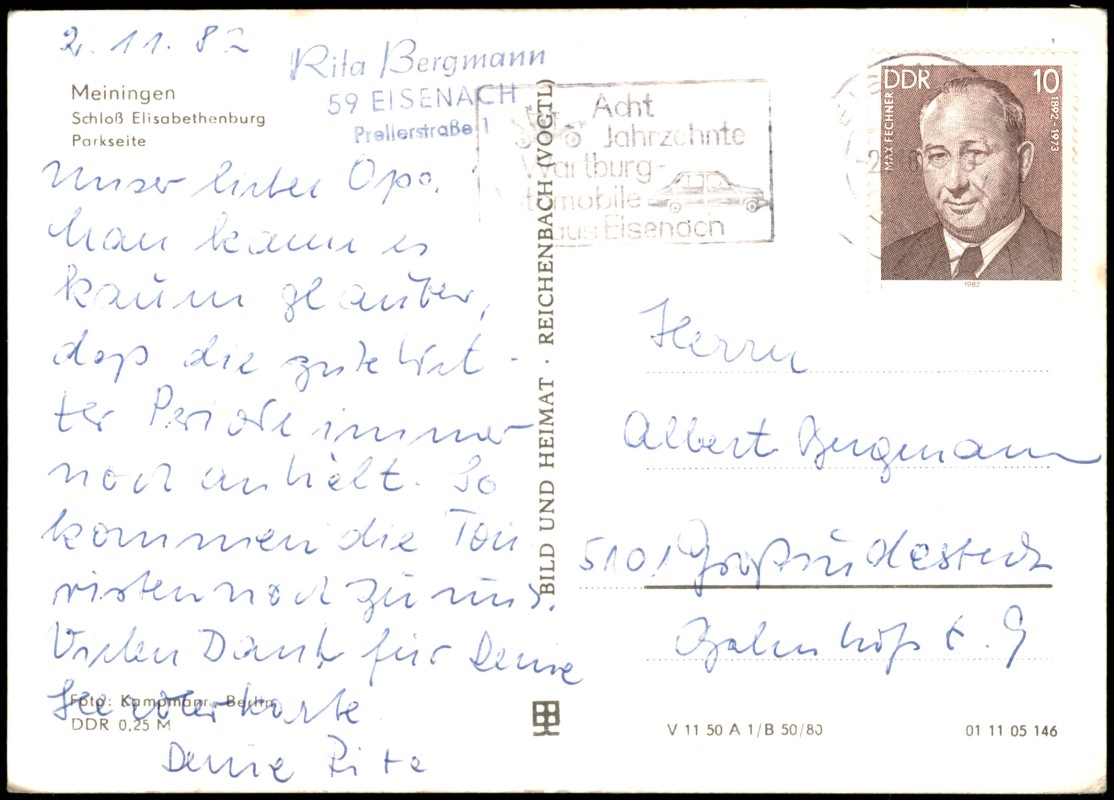 2. 11. 82
Rita Bergmann
59 EISENACH
Prellerstraße 1
Meiningen
Schloß Elisabethenburg
Parkseite
Unser lieber Opa.
Man kann es
kaum glauben,
daß die gute Wet-
ter Periode immer
noch anhält. So
kommen die Tou
risten noch zu uns.
Vielen Dank für Deine
karte
Deine Rita
Foto: Kampmann, Berlin
DDR 0,25 M
BILD UND HEIMAT · REICHENBACH (VOGTL)
Acht
Jahrzehnte
Wartburg-
automobile
aus Eisenach
DDR 10
MAX FECHNER
1892-1973
1982
Herrn
Albert Bergmann
5101 Großrudestedt
Bahnhofst. 9
V 11 50 A 1/B 50/80
01 11 05 146